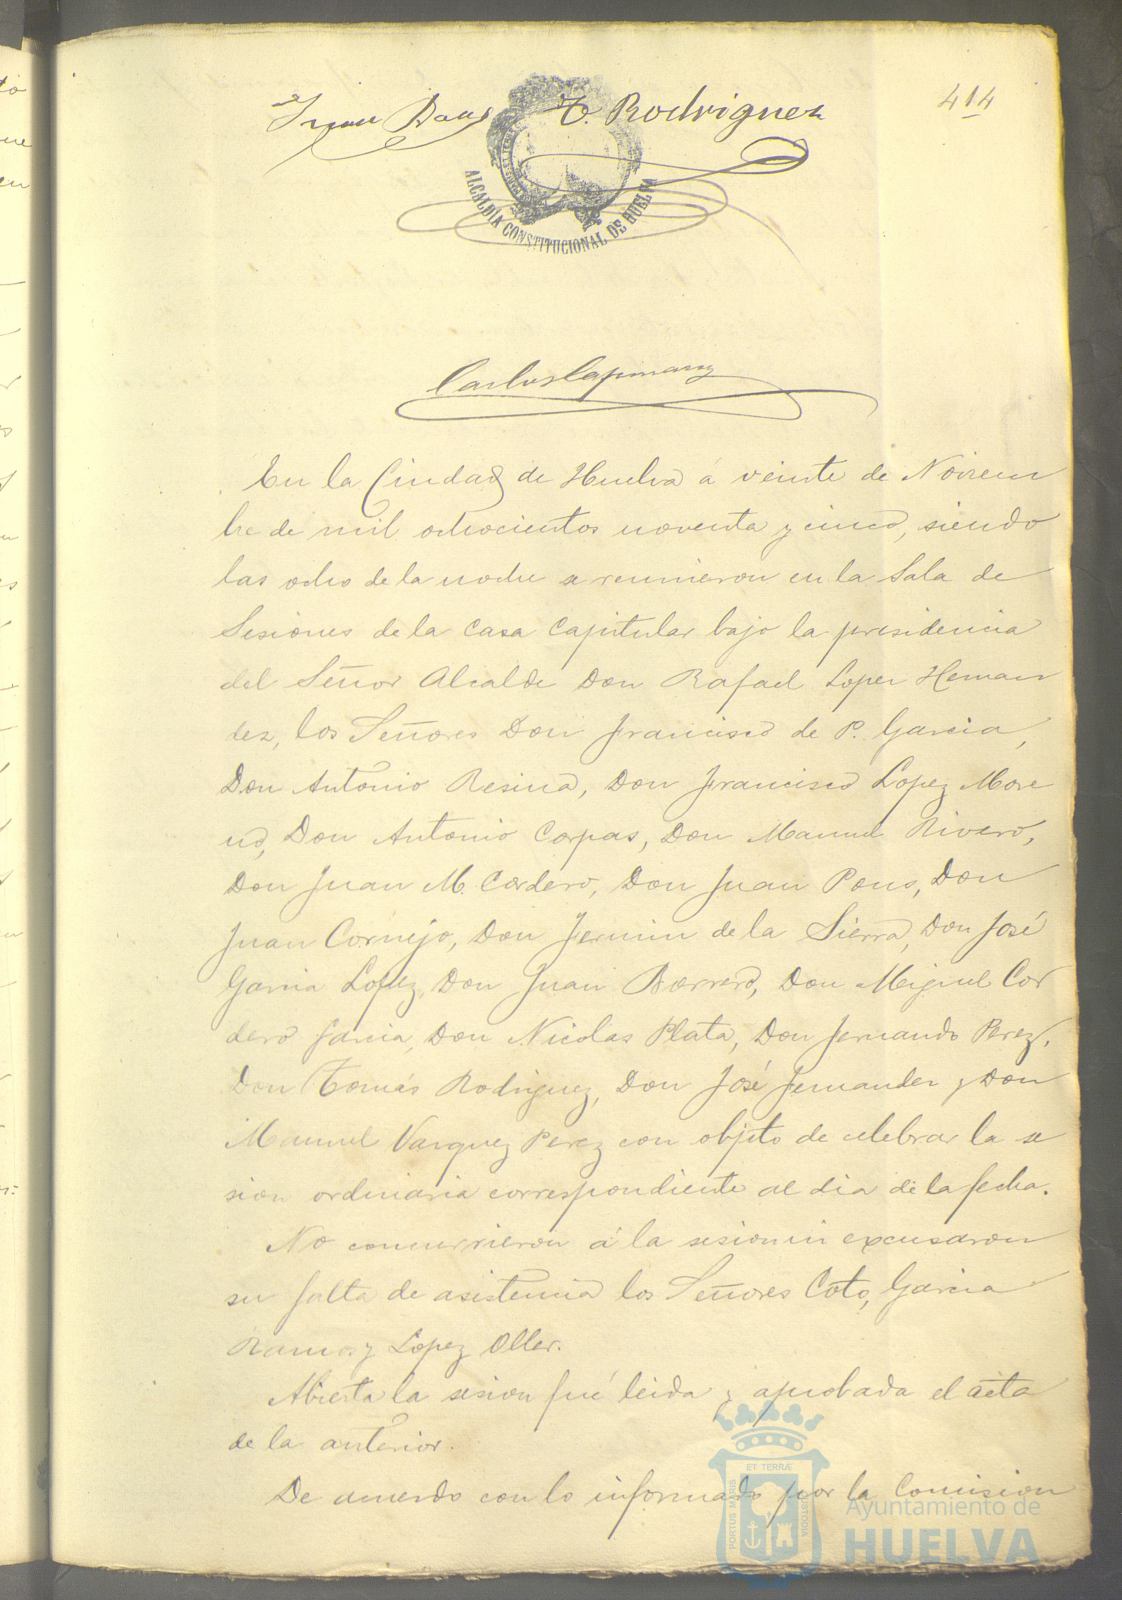 414
Juan Pons T. Rodriguez
ALCALDÍA CONSTITUCIONAL DE HUELVA
Carlos Capmany
En la Ciudad de Huelva á veinte de Noviem
bre de mil ochocientos noventa y cinco, siendo
las ocho de la noche se reunieron en la Sala de
Sesiones de la Casa Capitular bajo la presidencia
del Señor Alcalde Don Rafael Lopez Hernan
dez, los Señores Don Francisco de P. Garcia,
Don Antonio Resina, Don Francisco Lopez More
no, Don Antonio Corpas, Don Manuel Rivero,
Don Juan M. Cordero, Don Juan Pons, Don
Juan Cornejo, Don Fermin de la Sierra, Don José
Garcia Lopez, Don Juan Borrero, Don Miguel Cor
dero Garcia, Don Nicolas Plata, Don Fernando Perez,
Don Tomás Rodriguez, Don José Fernandez y Don
Manuel Vazquez Perez con objeto de celebrar la se
sion ordinaria correspondiente al dia de la fecha.
No concurrieron á la sesion ni excusaron
su falta de asistencia los Señores Coto, Garcia
Ramos y Lopez Oller.
Abierta la sesion fué leida y aprobada el acta
de la anterior.
De acuerdo con lo informado por la Comision
PORTUS MARIS ET TERRÆ CUSTODIA
Ayuntamiento de
HUELVA